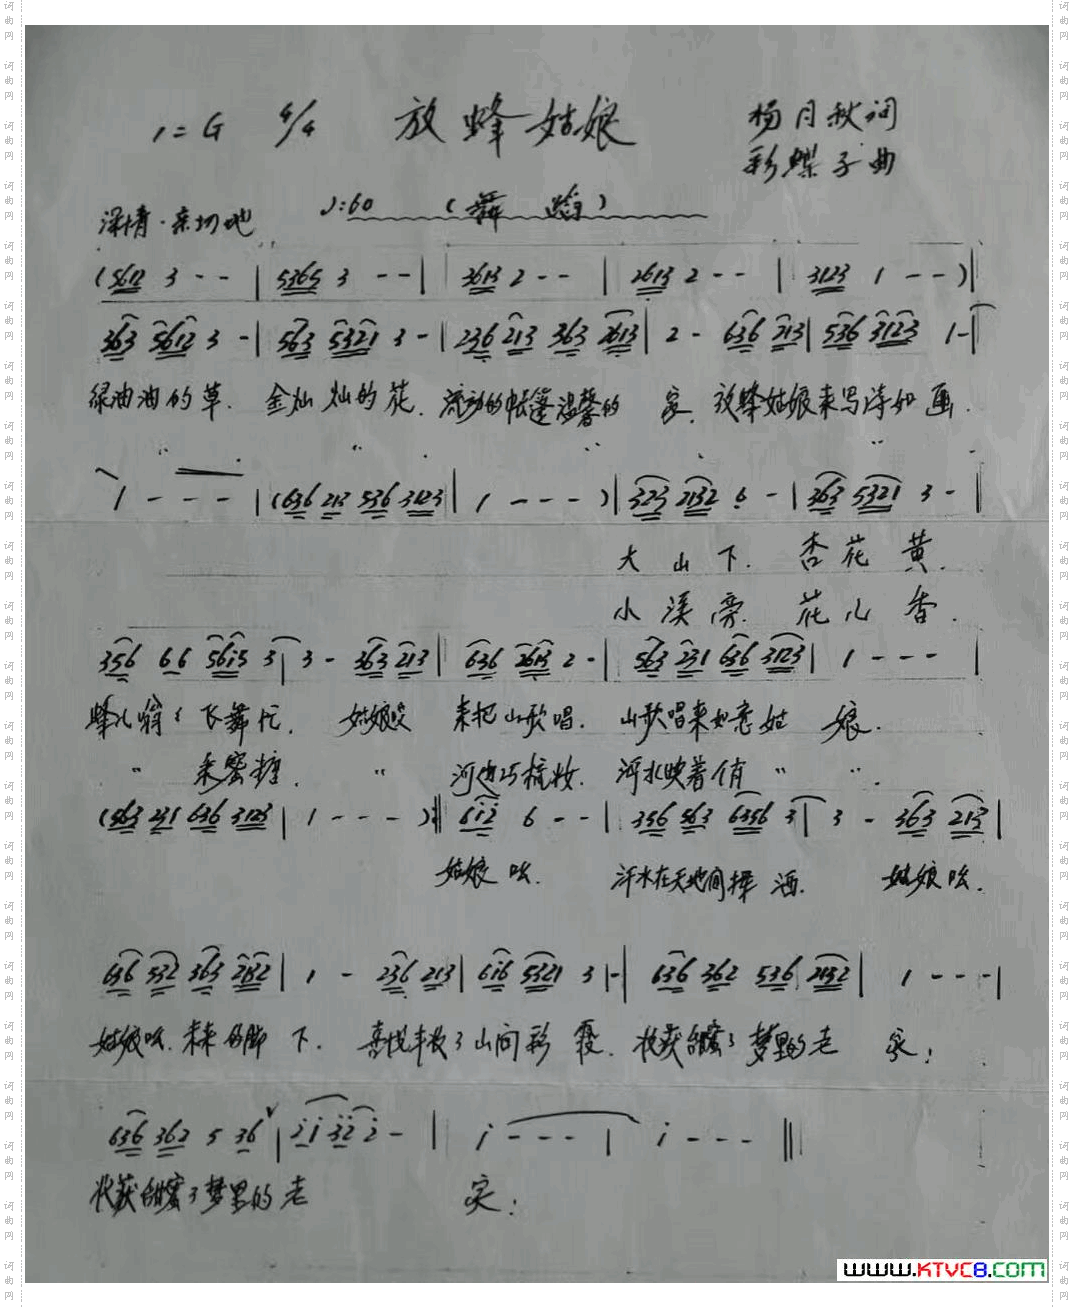 1=G 4/4 放蜂姑娘 杨月秋词
彩蝶子曲
深情·亲切地 ♩:60 (舞蹈)
(5612 3 - - | 5365 3 - - | 3613 2 - - | 2613 2 - - | 3123 1 - - )|
363 5612 3 - | 563 5321 3 - | 236 213 363 2613 | 2 - 636 213 | 536 3123 1 - |
绿油油的草. 金灿灿的花. 流动的帐篷温馨的 家. 放蜂姑娘来写诗如画.
1 - - - | (636 213 536 3123 | 1 - - - )| 323 2132 6 - | 363 5321 3 - |
大山下. 杏花黄.
小溪旁. 花儿香.
356 66 5615 3 | 3 - 363 213 | 636 2613 2 - | 563 231 636 3123 | 1 - - - |
蜂儿嗡〃飞舞忙. 姑娘 来把山歌唱. 山歌唱来如意姑 娘.
〃 采蜜糖. 〃 河边巧梳妆. 河水映着俏 〃 〃.
(563 231 636 3123 | 1 - - - ):‖ 612 6 - - | 356 563 6356 3 | 3 - 363 213 |
姑娘哟. 汗水在天地间挥洒. 姑娘哟.
636 532 363 2132 | 1 - 236 213 | 616 5321 3 - | 636 362 536 2132 | 1 - - - |
姑娘哟. 未来的脚下. 喜悦丰收了山间彩霞. 收获甜蜜了梦里的老 家;
636 362 5 36 | 21 32 2 - | i - - - | i - - - ‖
收获甜蜜了梦里的老 家;
www.KTVC8.com
词曲网